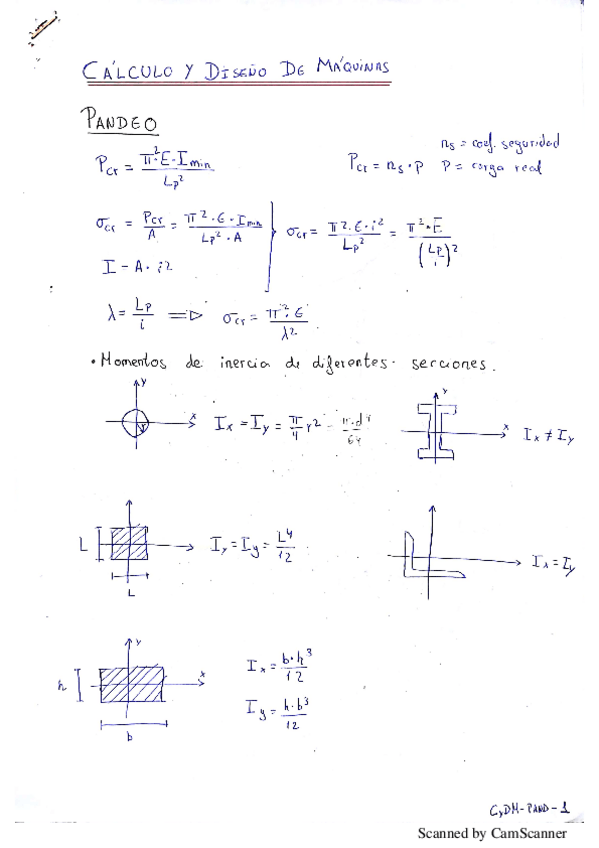 CÁLCULO Y DISEÑO DE MÁQUINAS
PANDEO
Pcr = π²·E·Imin / Lp²
Pcr = ns·P
ns = coef. seguridad
P = carga real
σcr = Pcr / A = π²·E·Imin / Lp²·A
I = A·i²
σcr = π²·E·i² / Lp² = π²·E / (Lp / i)²
λ = Lp / i ⇒ σcr = π²·E / λ²
• Momentos de inercia de diferentes secciones.
y
x
r
Ix = Iy = π/4 r² = π·d⁴/64
y
x
Ix ≠ Iy
L
L
Iy = Iy = L⁴/12
Ix = Iy
y
x
h
b
Ix = b·h³/12
Iy = h·b³/12
CyDM-PAND-1
Scanned by CamScanner